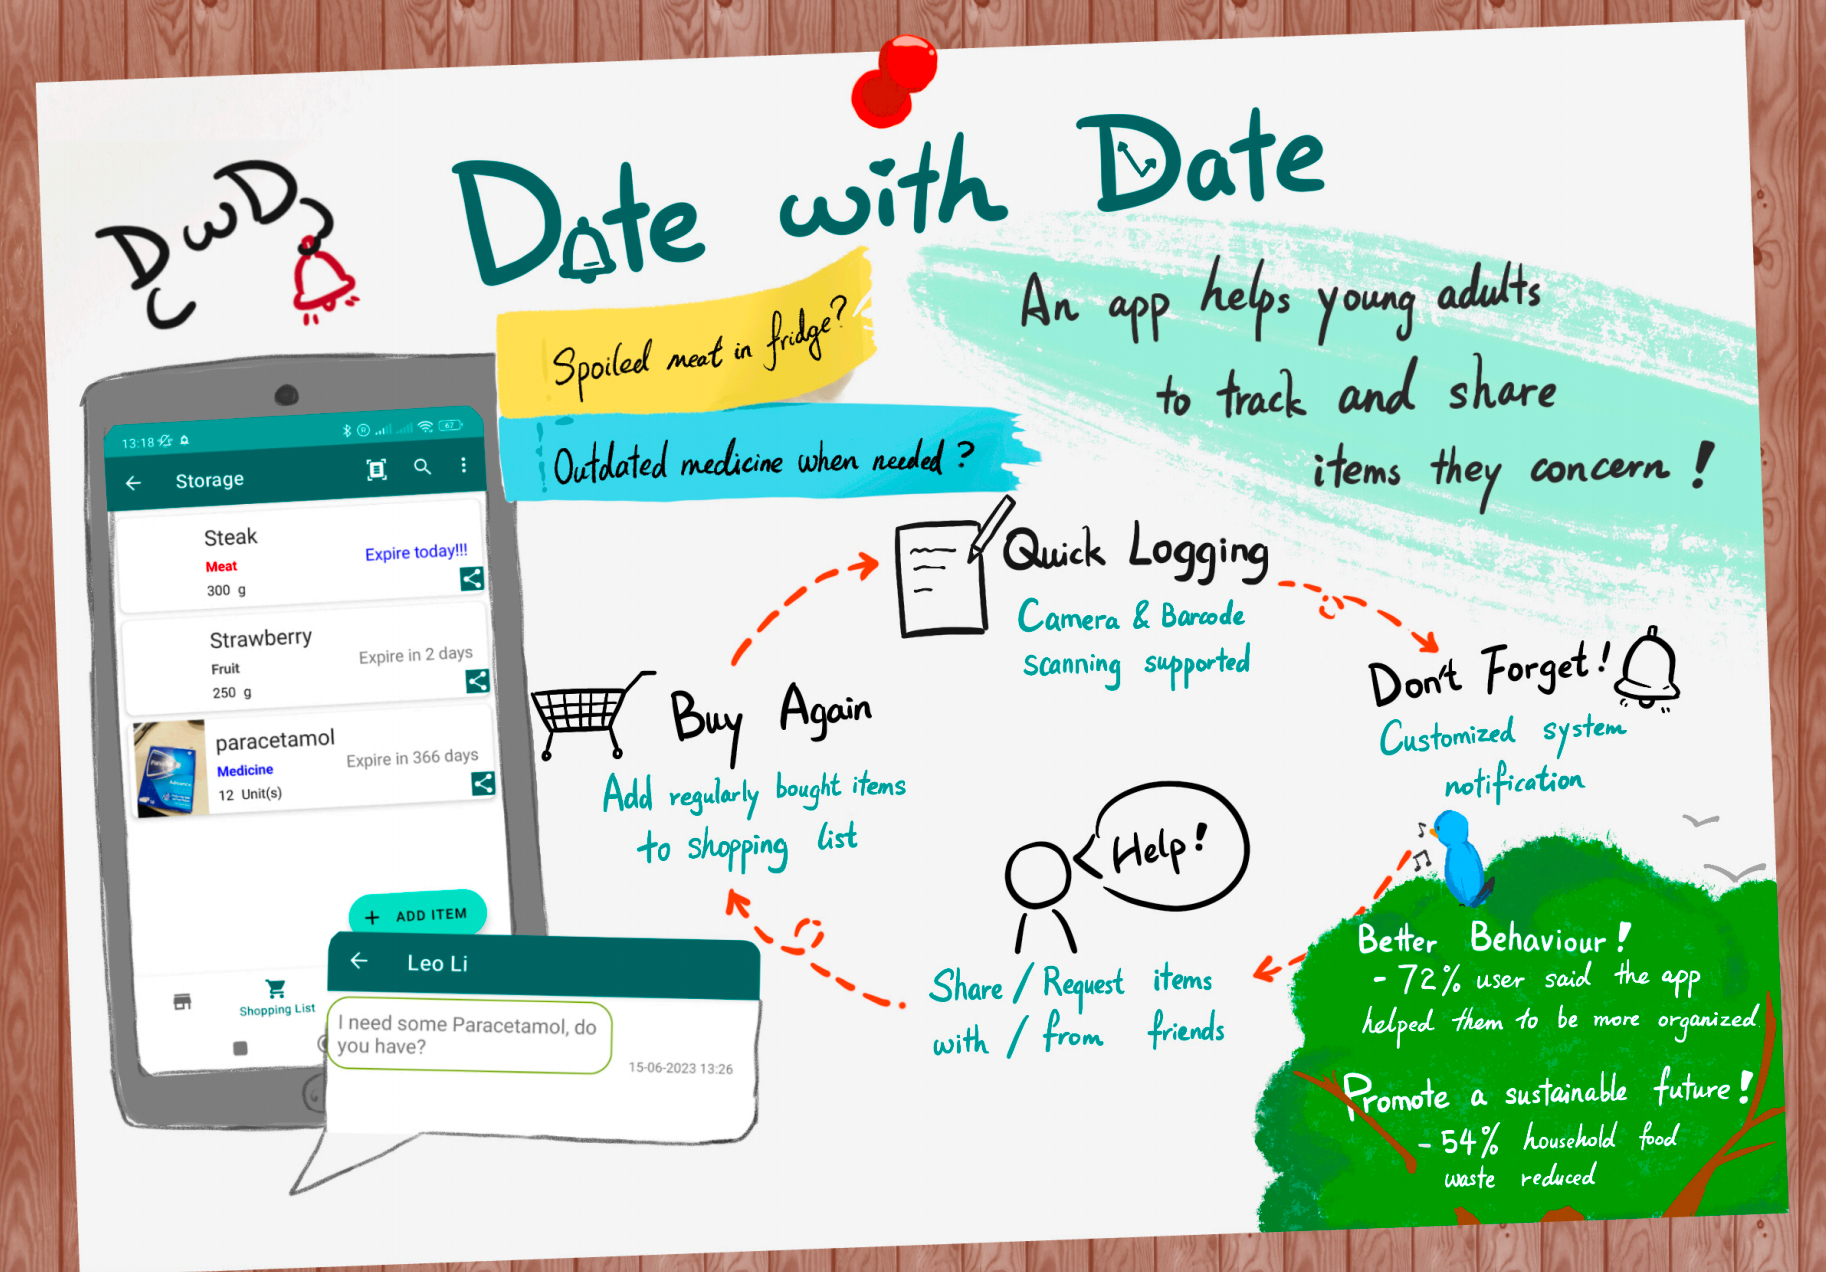 DwD
Date with Date
Spoiled meat in fridge?
Outdated medicine when needed?
An app helps young adults
to track and share
items they concern!
13:18
67
Storage
Steak
Meat
300 g
Expire today!!!
Strawberry
Fruit
250 g
Expire in 2 days
paracetamol
Medicine
12 Unit(s)
Expire in 366 days
+ ADD ITEM
Shopping List
Leo Li
I need some Paracetamol, do
you have?
15-06-2023 13:26
Quick Logging
Camera & Barcode
scanning supported
Don't Forget!
Customized system
notification
Help!
Share / Request items
with / from friends
Buy Again
Add regularly bought items
to shopping list
Better Behaviour!
- 72% user said the app
helped them to be more organized
Promote a sustainable future!
- 54% household food
waste reduced